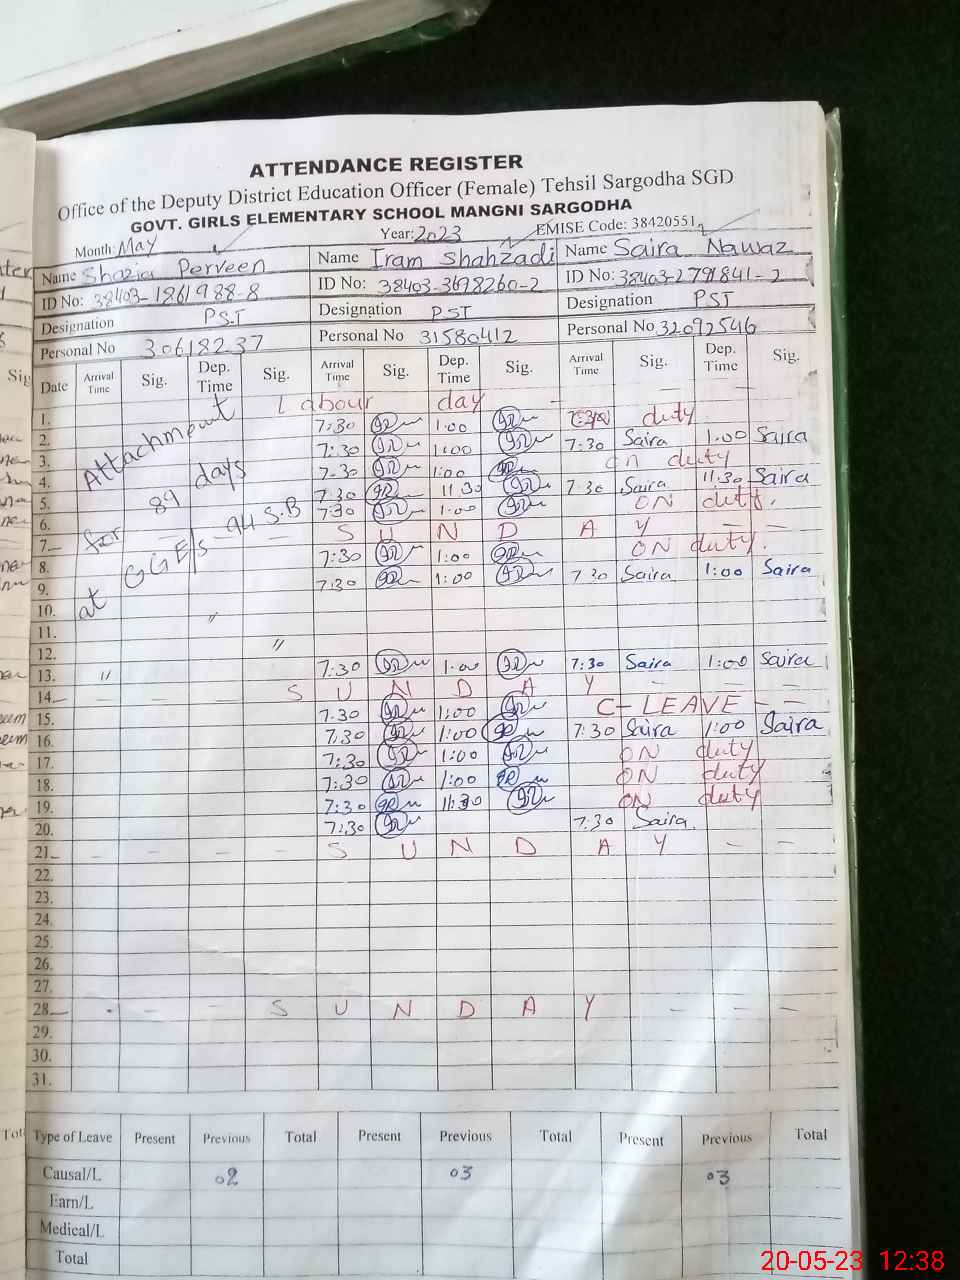 ATTENDANCE REGISTER
Office of the Deputy District Education Officer (Female) Tehsil Sargodha SGD
GOVT. GIRLS ELEMENTARY SCHOOL MANGNI SARGODHA
Month: May Year: 2023 EMISE Code: 38420551
Name Shazia Perveen Name Iram Shahzadi Name Saira Nawaz
ID No: 38403-1861988-8 ID No: 38403-3698260-2 ID No: 38403-2791841-2
Designation PST Designation PST Designation PST
Personal No 30618237 Personal No 31580412 Personal No 32092546
Date Arrival Time Sig. Dep. Time Sig. Arrival Time Sig. Dep. Time Sig. Arrival Time Sig. Dep. Time Sig.
Attachment for 89 days at GGE/s 94 S.B
1. Labour day
2. 7:30 1:00 duty
3. 7:30 1:00 7:30 Saira 1:00 Saira
4. 7:30 1:00 on duty
5. 7:30 11:30 7:30 Saira 11:30 Saira
6. 7:30 1:00 ON duty.
7. S U N D A Y
8. 7:30 1:00 ON duty.
9. 7:30 1:00 7:30 Saira 1:00 Saira
10. "
11.
12. "
13. " 7:30 1:00 7:30 Saira 1:00 Saira
14. S U N D A Y
15. 7:30 1:00 C-LEAVE
16. 7:30 1:00 7:30 Saira 1:00 Saira
17. 7:30 1:00 ON duty
18. 7:30 1:00 ON duty
19. 7:30 11:30 ON duty
20. 7:30 7:30 Saira
21. S U N D A Y
22.
23.
24.
25.
26.
27.
28. S U N D A Y
29.
30.
31.
Type of Leave Present Previous Total Present Previous Total Present Previous Total
Causal/L 02 03 03
Earn/L
Medical/L
Total
20-05-23 12:38